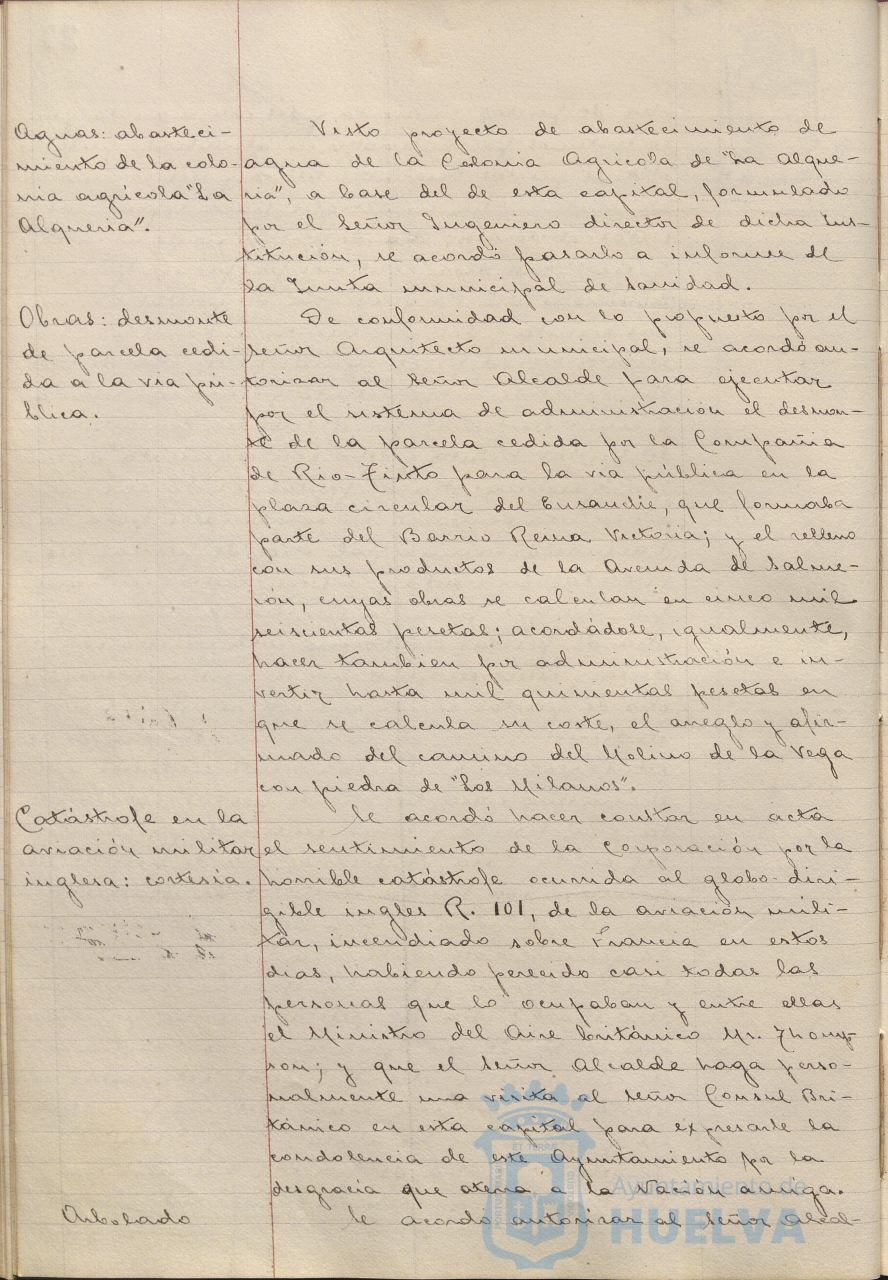 Aguas: abasteci-
miento de la colo-
nia agrícola "La
Alqueria".
Visto proyecto de abastecimiento de
agua de la Colonia Agrícola de "La Alque-
ria", a base del de esta capital, formulado
por el Señor Ingeniero director de dicha Ins-
titución, se acordó pasarlo a informe de
la Junta municipal de Sanidad.
Obras: desmonte
de parcela cedi-
da a la via pú-
blica.
De conformidad con lo propuesto por el
Señor Arquitecto municipal, se acordó au-
torizar al Señor Alcalde para ejecutar
por el sistema de administración el desmon-
te de la parcela cedida por la Compañia
de Rio-Tinto para la via pública en la
plaza circular del Ensanche, que formaba
parte del Barrio Reina Victoria; y el relleno
con sus productos de la Avenida de Salme-
rón, cuyas obras se calculan en cinco mil
seiscientas pesetas; acordádose, igualmente,
hacer tambien por administración e in-
vertir hasta mil quinientas pesetas en
que se calcula su coste, el arreglo y afir-
mado del camino del Molino de la Vega
con piedra de "Los Milanos".
Catástrofe en la
aviación militar
inglesa: cortesía.
Se acordó hacer constar en acta
el sentimiento de la Corporación por la
horrible catástrofe ocurrida al globo-diri-
gible ingles R. 101, de la aviación mili-
tar, incendiado sobre Francia en estos
dias, habiendo perecido casi todas las
personas que lo ocupaban y entre ellas
el Ministro del Aire británico Mr. Thomp-
son; y que el Señor Alcalde haga perso-
nalmente una visita al Señor Consul Bri-
tánico en esta capital para expresarle la
condolencia de este Ayuntamiento por la
desgracia que aterra a la Nación amiga.
Arbolado
Se acordó autorizar al Señor Alcal-
Ayuntamiento de
HUELVA